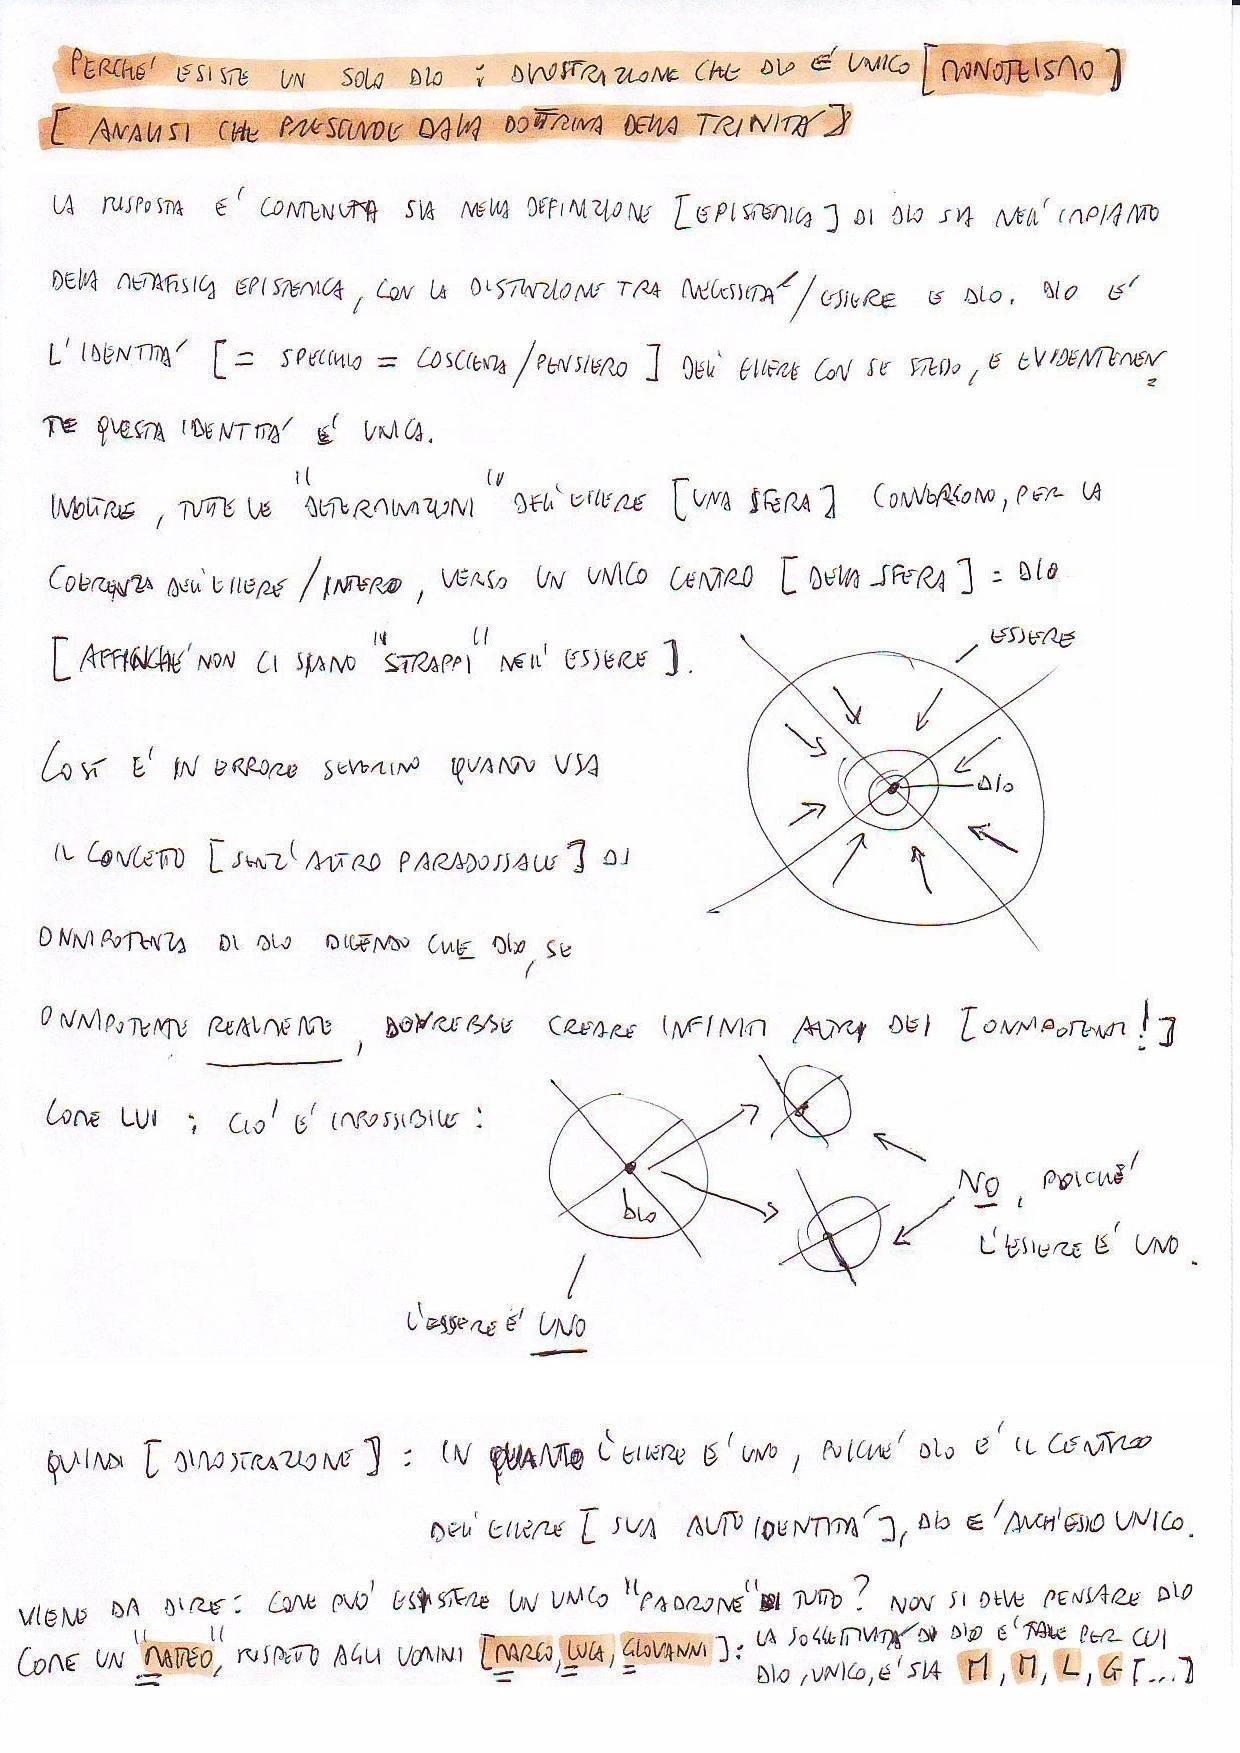 PERCHE' ESISTE UN SOLO DIO : DIMOSTRAZIONE CHE DIO E' UNICO [MONOTEISMO]
[ANALISI CHE PRESCINDE DALLA DOTTRINA DELLA TRINITA']
LA RISPOSTA E' CONTENUTA SIA NELLA DEFINIZIONE [EPISTEMICA] DI DIO SIA NELL'IMPIANTO
DELLA METAFISICA EPISTEMICA, CON LA DISTINZIONE TRA NECESSITA'/ESSERE E DIO. DIO E'
L'IDENTITA' [= SPECCHIO = COSCIENZA/PENSIERO] DELL'ESSERE CON SE STESSO, E EVIDENTEMEN
TE QUESTA IDENTITA' E' UNICA.
INOLTRE, TUTTE LE "DETERMINAZIONI" DELL'ESSERE [UNA SFERA] CONVERGONO, PER LA
COERENZA DELL'ESSERE/INTERO, VERSO UN UNICO CENTRO [DELLA SFERA] = DIO
[AFFINCHE' NON CI SIANO "STRAPPI" NELL'ESSERE].
ESSERE
DIO
COSI' E' IN ERRORE SEVERINO QUANTO USA
IL CONCETTO [SENZ'ALTRO PARADOSSALE] DI
ONNIPOTENZA DI DIO DICENDO CHE DIO, SE
ONNIPOTENTE REALMENTE, DOVREBBE CREARE INFINITI ALTRI DEI [ONNIPOTENTI!]
COME LUI ; CIO' E' IMPOSSIBILE :
DIO
NO, POICHE'
L'ESSERE E' UNO.
L'ESSERE E' UNO
QUINDI [DIMOSTRAZIONE] : IN QUANTO L'ESSERE E' UNO, POICHE' DIO E' IL CENTRO
DELL'ESSERE [SUA AUTOIDENTITA'], DIO E' ANCH'ESSO UNICO.
VIENE DA DIRE : COME PUO' ESISTERE UN UNICO "PADRONE" DI TUTTO? NON SI DEVE PENSARE DIO
COME UN "MATTEO", RISPETTO AGLI UOMINI [MARCO, LUCA, GIOVANNI] : LA SOGGETTIVITA' DI DIO E' TALE PER CUI
DIO, UNICO, E' SIA M, M, L, G [...]